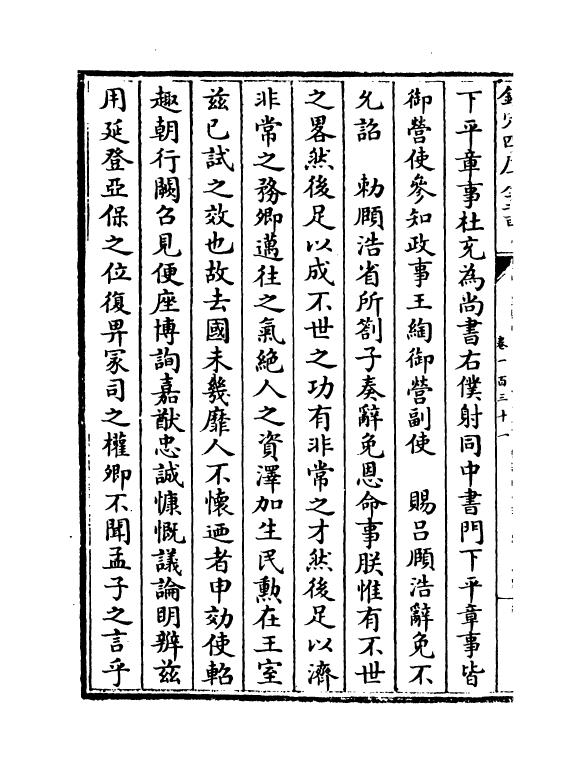 下平章事杜充為尚書右僕射同中書門下平章事皆
御營使參知政事王綯御營副使　賜吕頤浩辭免不
允詔　勅頤浩省所劄子奏辭免恩命事朕惟有不世
之畧然後足以成不世之功有非常之才然後足以濟
非常之務卿邁往之氣絶人之資澤加生民勲在王室
兹已試之效也故去國未幾靡人不懷廼者申効使軺
趣朝行闕召見便座博詢嘉猷忠誠慷慨議論明辨兹
用延登亞保之位復畀冢司之權卿不聞孟子之言乎
卷一百三十一